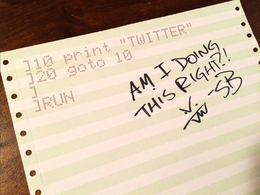 ]10 print "TWITTER"
]20 goto 10
]
]RUN
AM I DOING
THIS RIGHT?!
-SB